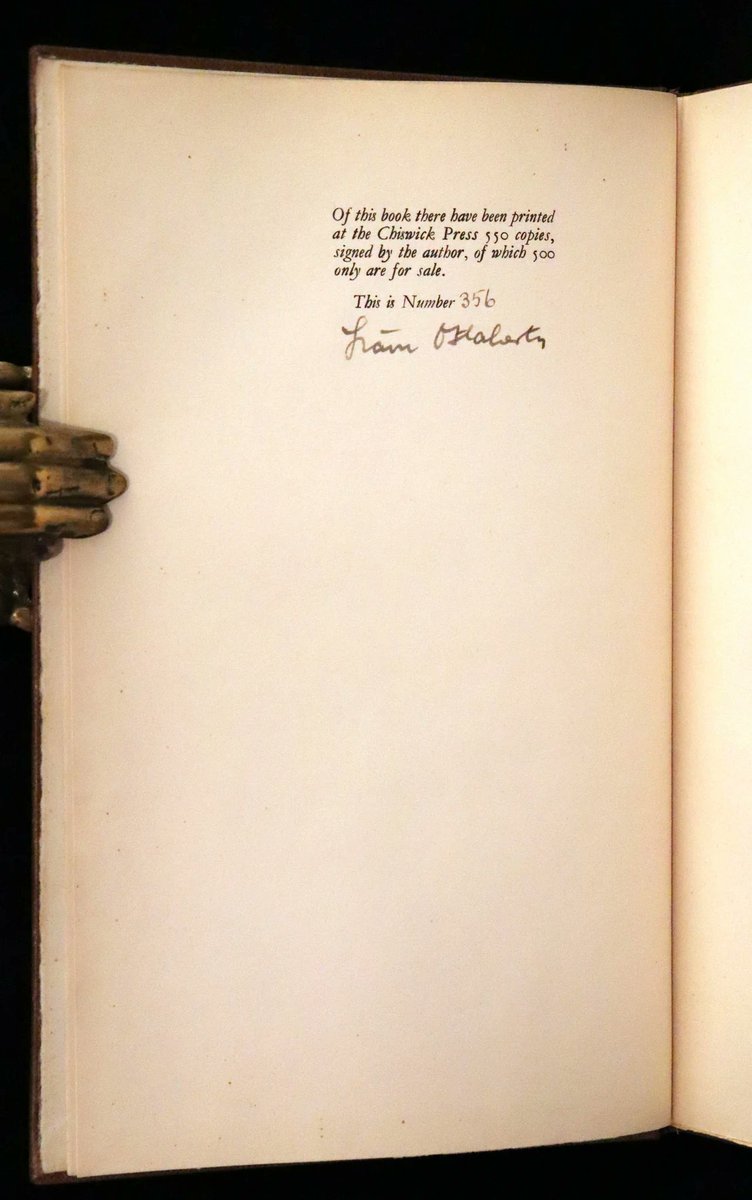 Of this book there have been printed
at the Chiswick Press 550 copies,
signed by the author, of which 500
only are for sale.
This is Number 356
Liam O'Flaherty